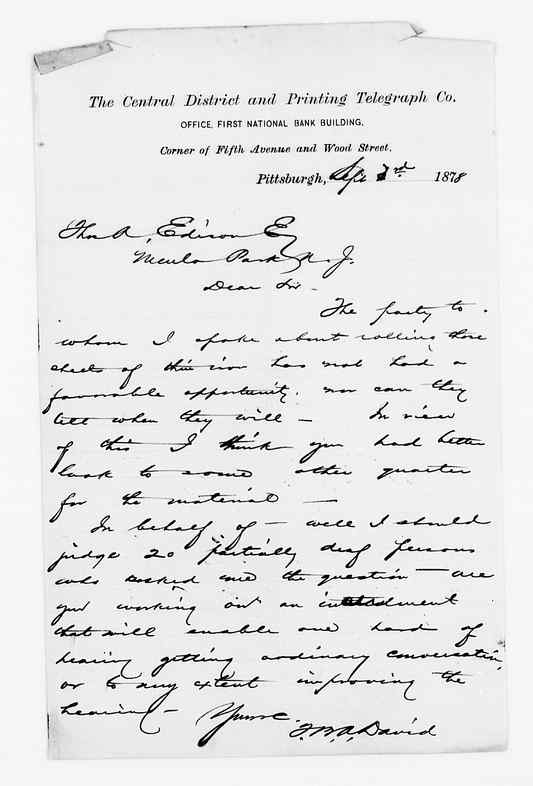 The Central District and Printing Telegraph Co.
OFFICE, FIRST NATIONAL BANK BUILDING,
Corner of Fifth Avenue and Wood Street.
Pittsburgh, Sept 3rd 1878
Thos A, Edison Esq
Menlo Park N. J.
Dear Sir -
The party to
whom I spoke about rolling those
sheets of thin iron has not had a
favorable opportunity. nor can they
tell when they will — In view
of this I think you had better
look to some other quarter
for the material —
In behalf of — well I should
judge 20 partially deaf persons
who asked me the question — are
you working on an instrument
that will enable one hard of
hearing getting ordinary conversation,
or to any extent improving the
hearing —
Yours.
T.B.A. David